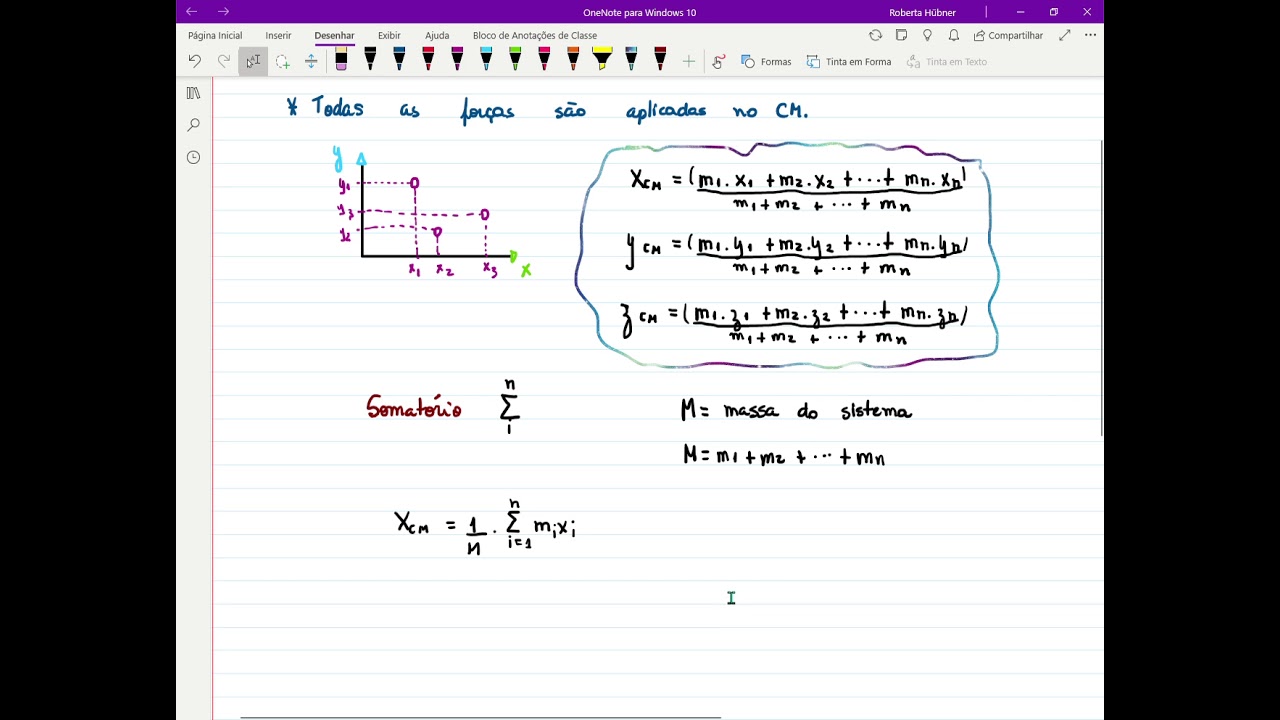 OneNote para Windows 10
Roberta Hübner
Página Inicial Inserir Desenhar Exibir Ajuda Bloco de Anotações de Classe Compartilhar
Formas Tinta em Forma Tinta em Texto
* Todas as forças são aplicadas no CM.
y
y1
y3
y2
x1 x2 x3 x
XCM = (m1.x1 + m2.x2 + ... + mn.xn)
m1 + m2 + ... + mn
yCM = (m1.y1 + m2.y2 + ... + mn.yn)
m1 + m2 + ... + mn
zCM = (m1.z1 + m2.z2 + ... + mn.zn)
m1 + m2 + ... + mn
Somatório n Σ i
M = massa do sistema
M = m1 + m2 + ... + mn
XCM = 1/M . n Σ i=1 mixi